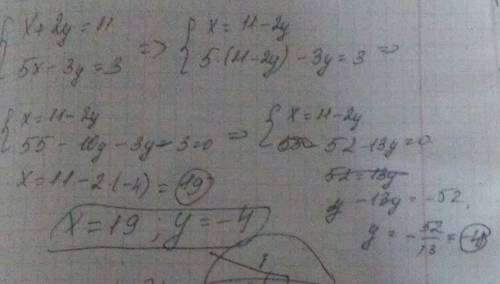 { x + 2y = 11
5x - 3y = 3 => { x = 11 - 2y
5·(11 - 2y) - 3y = 3 =>
{ x = 11 - 2y
55 - 10y - 3y - 3 = 0 => { x = 11 - 2y
52 - 13y = 0
52 = 13y
- 13y = -52
x = 11 - 2·(-4) = 19
y = - 52/13 = -4
x = 19 ; y = -4